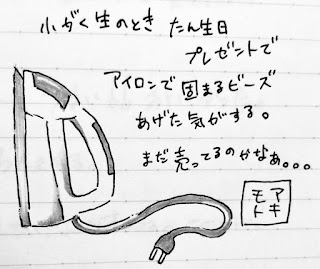 小がく生のとき たん生日
プレゼントで
アイロンで固まるビーズ
あげた気がする。
まだ売ってるのかなぁ。。。
アキ
モト